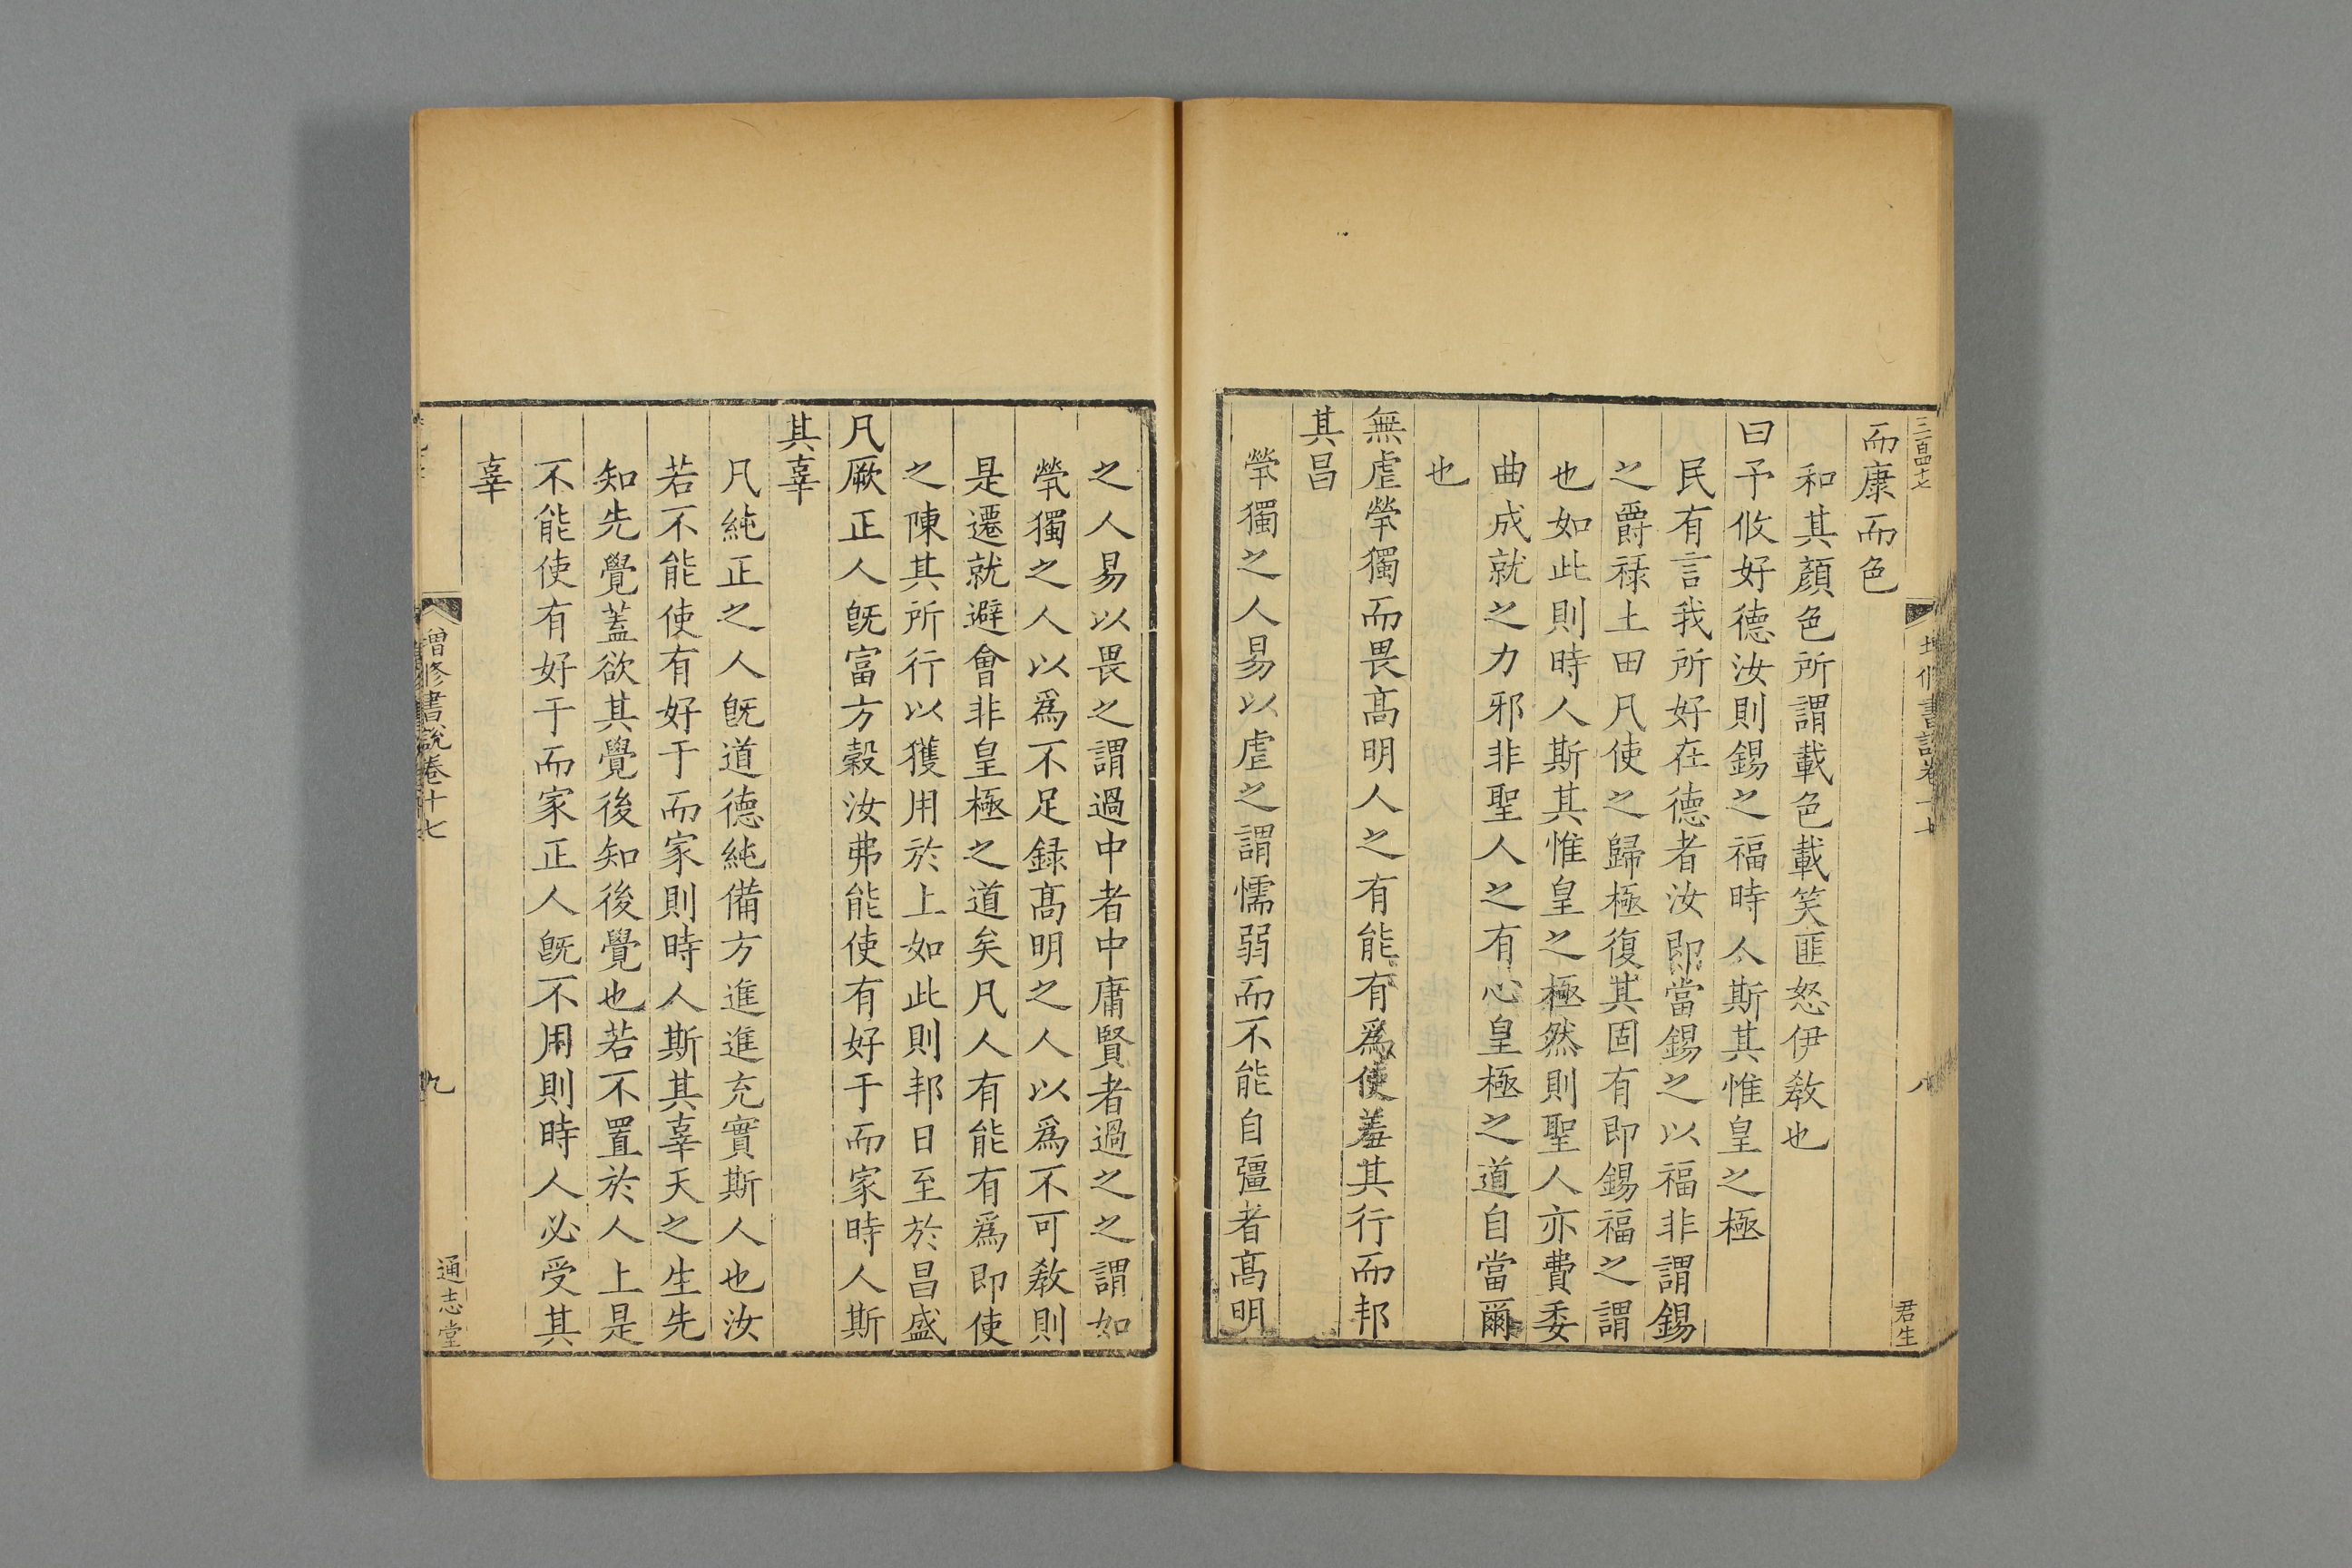 三百四十七
君生
而康而色
和其顏色所謂載色載笑匪怒伊敎也
曰予攸好德汝則錫之福時人斯其惟皇之極
民有言我所好在德者汝即當錫之以福非謂錫
之爵祿土田凡使之歸極復其固有即錫福之謂
也如此則時人斯其惟皇之極然則聖人亦費委
曲成就之力邪非聖人之有心皇極之道自當爾
也
無虐煢獨而畏髙明人之有能有爲使羞其行而邦
其昌
煢獨之人易以虐之謂懦弱而不能自彊者髙明
之人易以畏之謂過中者中庸賢者過之之謂如
煢獨之人以爲不足録髙明之人以爲不可敎則
是遷就避會非皇極之道矣凡人有能有爲即使
之陳其所行以獲用於上如此則邦日至於昌盛
凡厥正人旣富方穀汝弗能使有好于而家時人斯
其辜
凡純正之人旣道德純備方進進充實斯人也汝
若不能使有好于而家則時人斯其辜天之生先
知先覺蓋欲其覺後知後覺也若不置於人上是
不能使有好于而家正人旣不用則時人必受其
辜
增修書說卷十七
九
通志堂